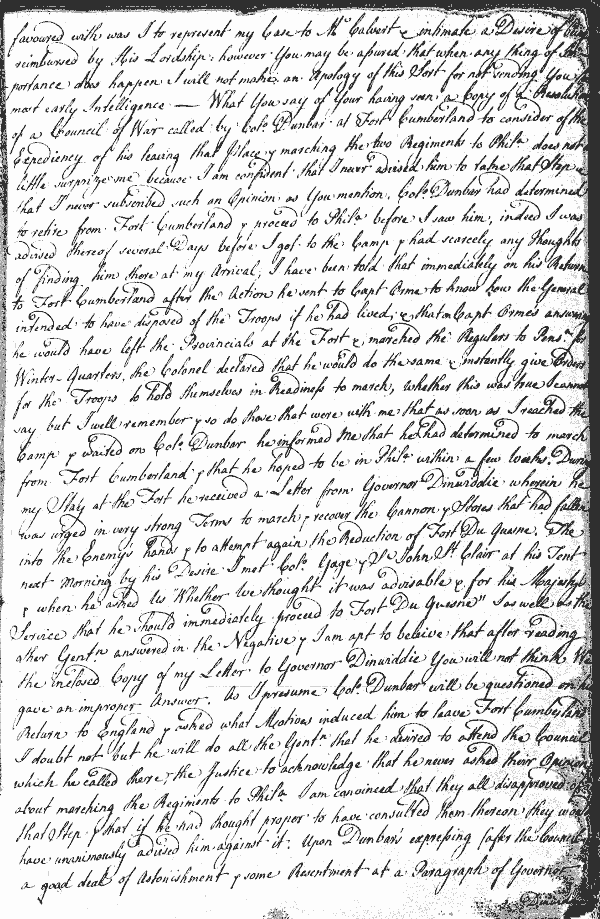 favoured with was I to represent my Case to Mr. Calvert & intimate a Desire of being
reimbursed by His Lordship; however You may be assured that when any thing of Im-
portance does happen I will not make an Apology of this Sort for not sending You the
most early Intelligence — What You say of Your having seen a Copy of a Resolution
of a Council of War called by Colo. Dunbar at Fort Cumberland to consider of the
Expediency of his leaving that Place & marching the two Regiments to Phila. does not a
little surprize me because I am confident that I never advised him to take that Step &
that I never subscribed such an Opinion as You mention. Colo. Dunbar had determined
to retire from Fort Cumberland & proceed to Phila. before I saw him, indeed I was
advised thereof several Days before I got to the Camp & had scarcely any Thoughts
of finding him there at my Arrival, I have been told that immediately on his Return
to Fort Cumberland after the Action he sent to Capt Orme to know how the General
intended to have disposed of the Troops if he had lived, & that on Capt Orme's answer
he would have left the Provincials at the Fort & marched the Regulars to Pensa. for
Winter-Quarters, the Colonel declared that he would do the same & instantly give Orders
for the Troops to hold themselves in Readiness to march, whether this was true I cannot
say but I well remember & so do those that were with me that as soon as I reached the
Camp & waited on Colo. Dunbar he informed me that he had determined to march
from Fort Cumberland & that he hoped to be in Phila. within a few Weeks. During
my Stay at the Fort he received a Letter from Governor Dinwiddie wherein he
was urged in very strong Terms to march & recover the Cannon & Stores that had fallen
into the Enemys hands & to attempt again the Reduction of Fort Du Quesne. The
next morning by his Desire I met Colo. Gage & Sr. John St. Clair at his Tent
& when he asked Us "Whether We thought it was advisable & for his Majesty's
Service that he should immediately proceed to Fort Du Quesne" I as well as the
other Gentn. answered in the Negative & I am apt to beleive that after reading
the inclosed Copy of my Letter to Governor Dinwiddie You will not think We
gave an improper Answer. As I presume Colo. Dunbar will be questioned on his
Return to England & asked what Motives induced him to leave Fort Cumberland
I doubt not but he will do all the Gentn. that he desired to attend the Council
which he called there, the Justice to acknowledge that he never asked their Opinion
about marching the Regiments to Phila. I am convinced that they all disapproved of
that Step & that if he had thought proper to have consulted them thereon they would
have unanimously advised him against it. Upon Dunbar's expressing (after the Council)
a good deal of Astonishment & some Resentment at a Paragraph of Governor
Dinwid